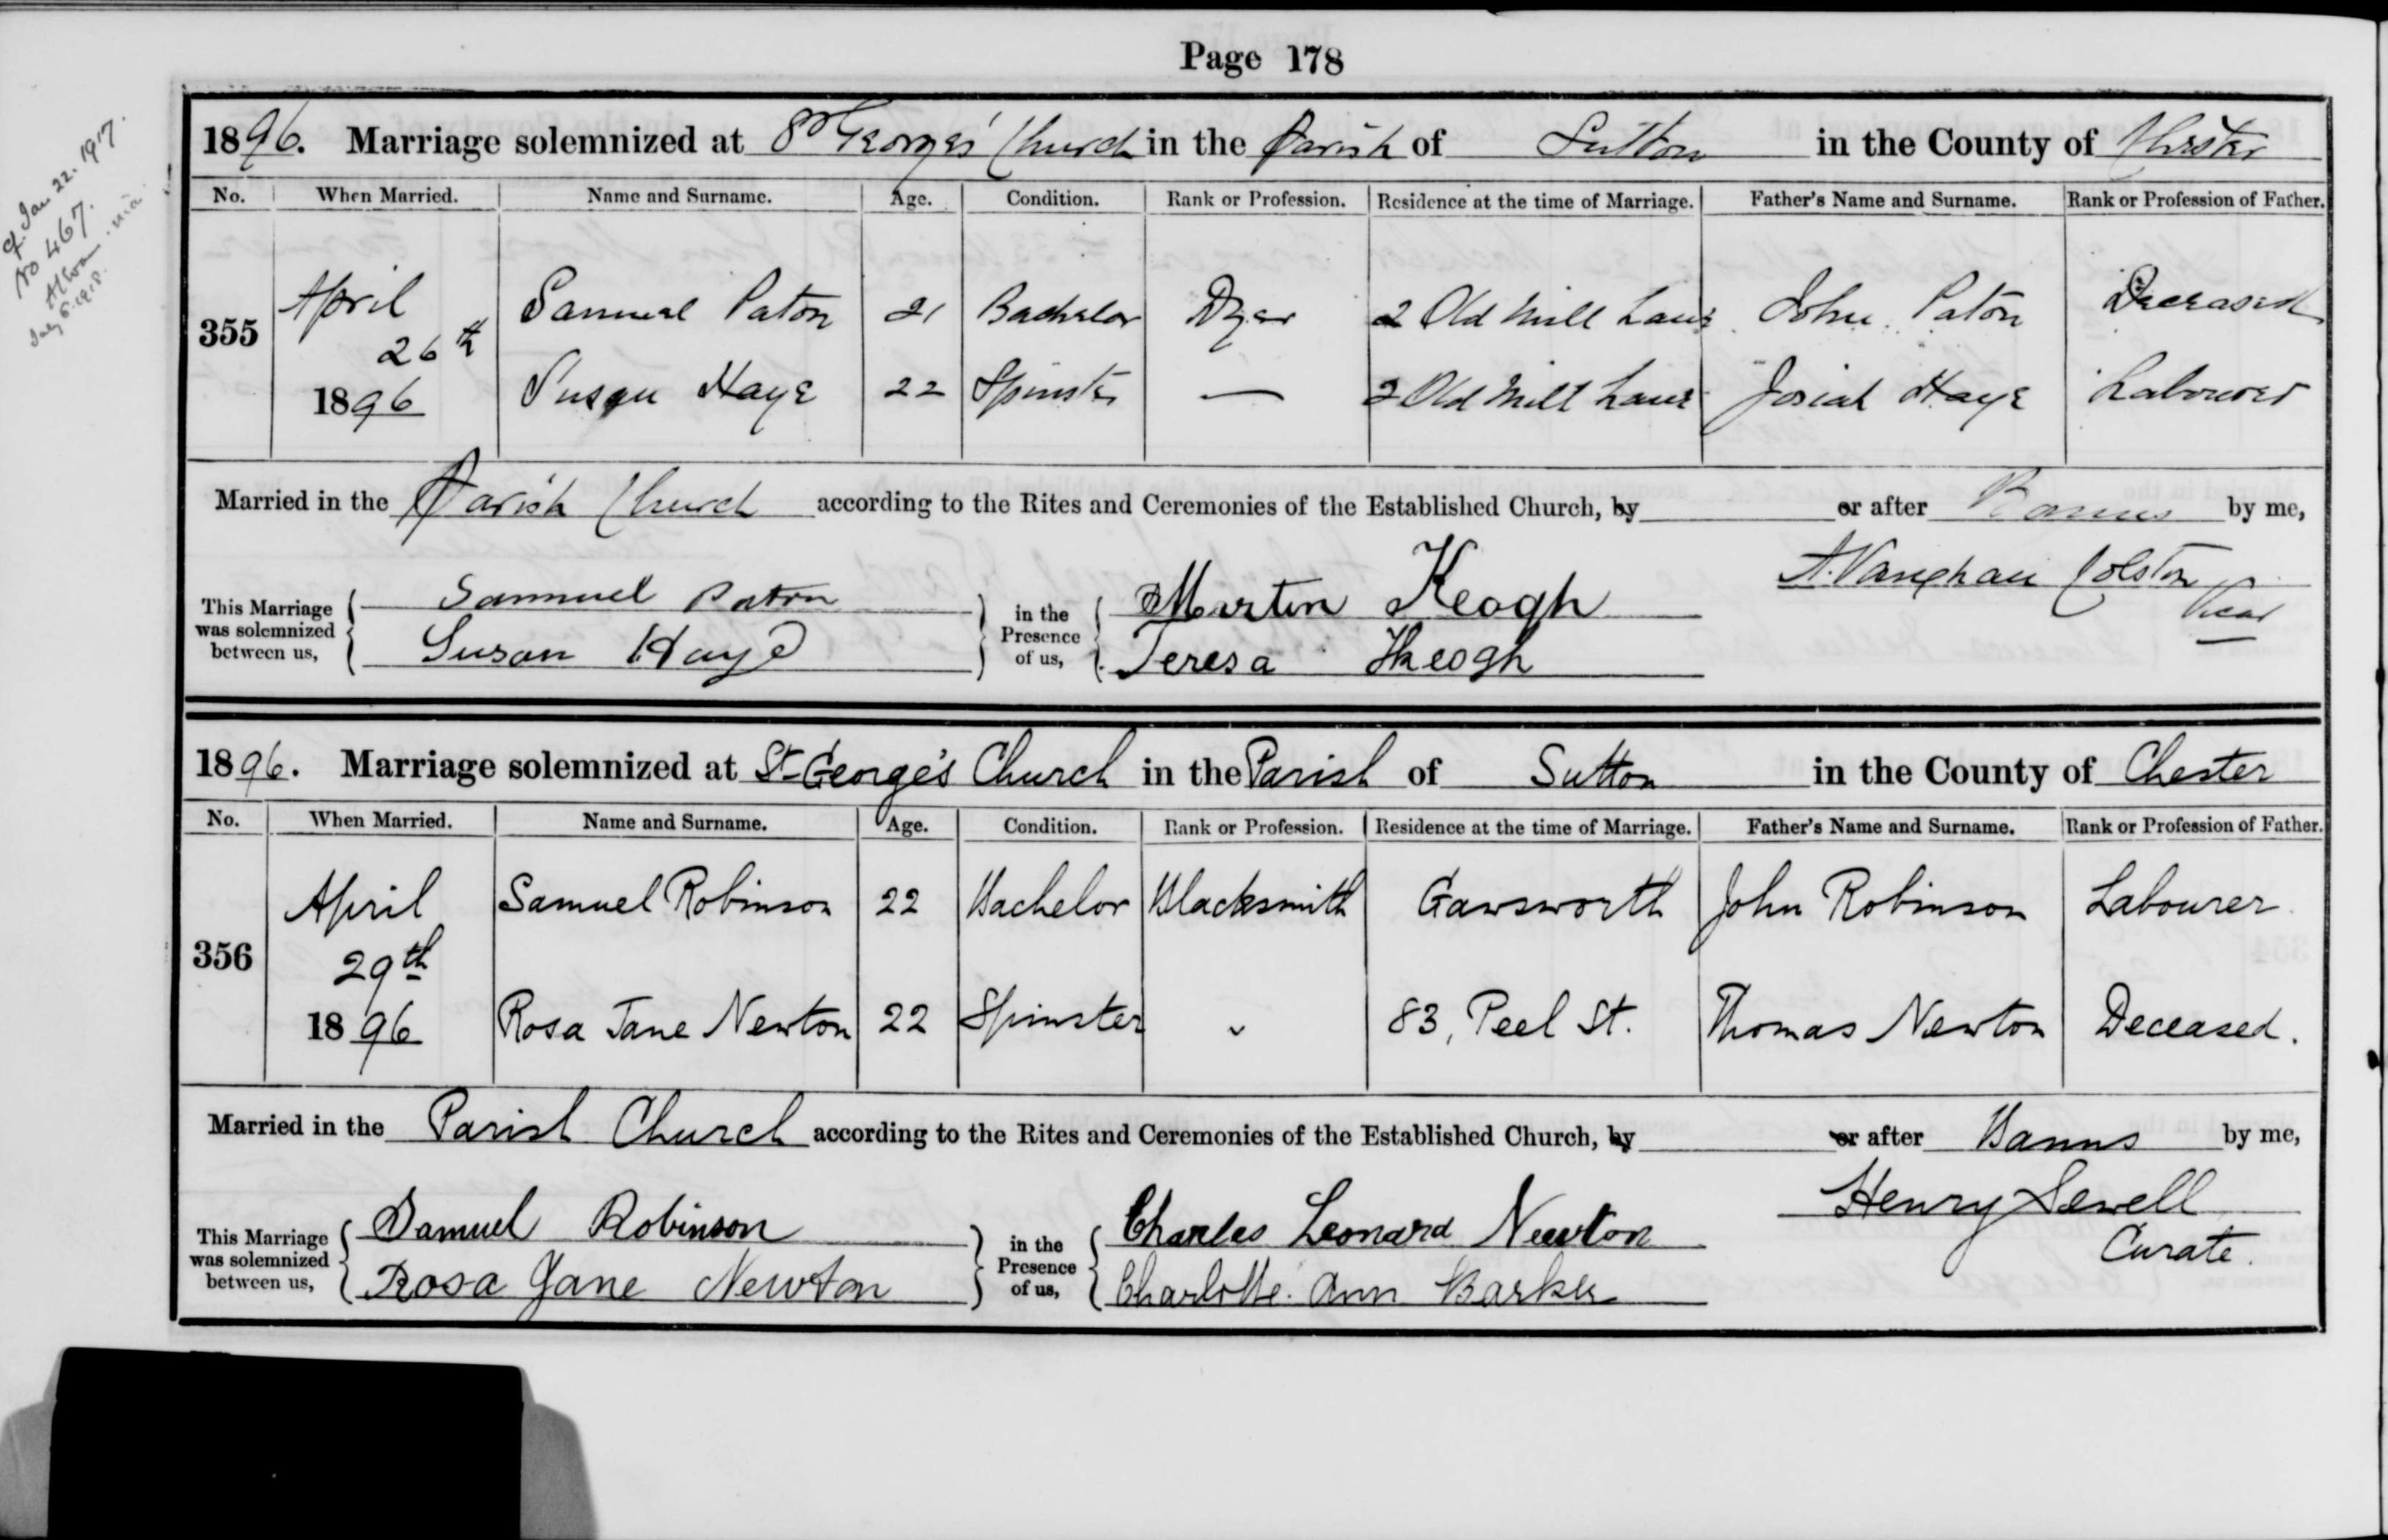 Page 178
cf. Jan 22. 1917.
No 467.
July 6. 1918.
1896. Marriage solemnized at St George's Church in the Parish of Sutton in the County of Chester
No. When Married. Name and Surname. Age. Condition. Rank or Profession. Residence at the time of Marriage. Father's Name and Surname. Rank or Profession of Father.
April Samuel Paton 21 Bachelor Dyer 2 Old Mill Lane John Paton Deceased
355
26th
1896 Susan Haye 22 Spinster — 2 Old Mill Lane Josiah Haye Labourer
Married in the Parish Church according to the Rites and Ceremonies of the Established Church, by or after Banns by me,
This Marriage was solemnized between us, Samuel Paton in the Presence of us, Martin Keogh A. Vaughan Colston
Susan Haye Teresa Keogh Vicar
1896. Marriage solemnized at St George's Church in the Parish of Sutton in the County of Chester
No. When Married. Name and Surname. Age. Condition. Rank or Profession. Residence at the time of Marriage. Father's Name and Surname. Rank or Profession of Father.
April Samuel Robinson 22 Bachelor Blacksmith Gawsworth John Robinson Labourer
356
29th
1896 Rosa Jane Newton 22 Spinster 83, Peel St. Thomas Newton Deceased.
Married in the Parish Church according to the Rites and Ceremonies of the Established Church, by or after Banns by me,
This Marriage was solemnized between us, Samuel Robinson in the Presence of us, Charles Leonard Newton Henry Sewell
Rosa Jane Newton Charlotte Ann Barker Curate.